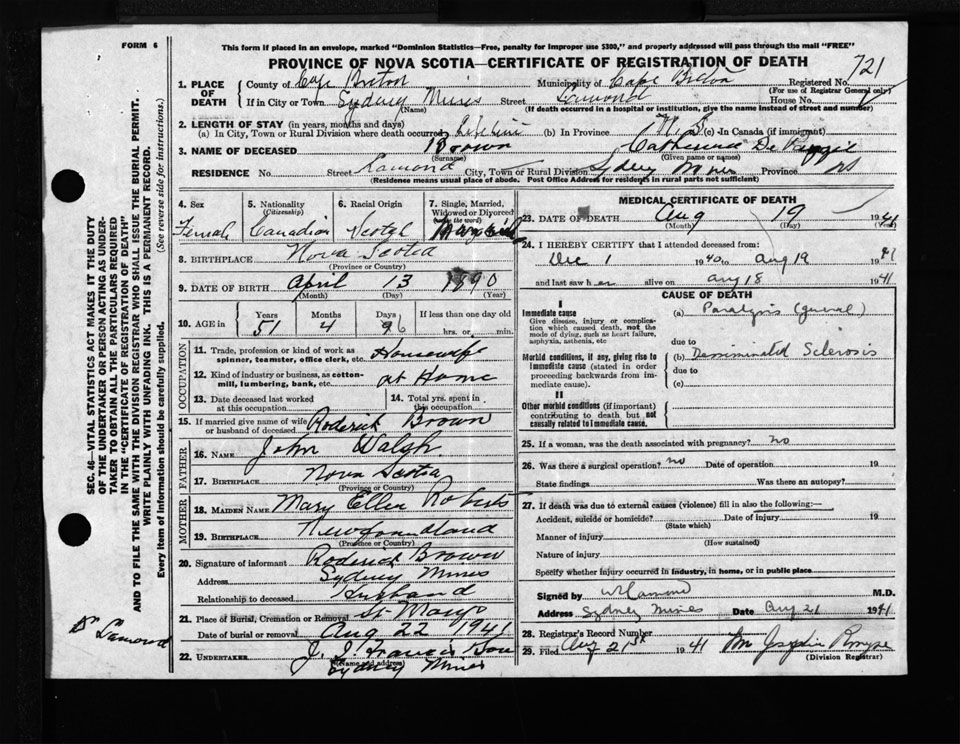 FORM 6
This form if placed in an envelope, marked "Dominion Statistics—Free, penalty for improper use $300," and properly addressed will pass through the mail "FREE"
PROVINCE OF NOVA SCOTIA—CERTIFICATE OF REGISTRATION OF DEATH
1. PLACE OF DEATH County of Cape Breton Municipality of Cape Breton Registered No. 721
(For use of Registrar General only)
If in City or Town Sydney Mines Street House No.
(Name) (If death occurred in a hospital or institution, give the name instead of street and number)
2. LENGTH OF STAY (in years, months and days)
(a) In City, Town or Rural Division where death occurred Lifetime (b) In Province N.S (c) In Canada (if immigrant)
3. NAME OF DECEASED Brown Catherine
(Surname) (Given name or names)
RESIDENCE No. Street City, Town or Rural Division Sydney Mines Province NS
(Residence means usual place of abode. Post Office Address for residents in rural parts not sufficient)
4. Sex Female
5. Nationality (Citizenship) Canadian
6. Racial Origin Scotch
7. Single, Married, Widowed or Divorced (write the word) Married
8. BIRTHPLACE Nova Scotia
(Province or Country)
9. DATE OF BIRTH April 13 1890
(Month) (Day) (Year)
10. AGE in Years Months Days If less than one day
51 4 hrs. or min.
OCCUPATION
11. Trade, profession or kind of work as spinner, teamster, office clerk, etc. Housewife
12. Kind of industry or business, as cotton-mill, lumbering, bank, etc. at Home
13. Date deceased last worked at this occupation
14. Total yrs. spent in this occupation
15. If married give name of wife or husband of deceased Roderick Brown
FATHER
16. NAME John Walsh
17. BIRTHPLACE Nova Scotia
(Province or Country)
MOTHER
18. MAIDEN NAME Mary Ellen Roberts
19. BIRTHPLACE Newfoundland
(Province or Country)
20. Signature of informant Roderick Brown
Address Sydney Mines
Relationship to deceased Husband
21. Place of Burial, Cremation or Removal St Marys
Date of burial or removal Aug 22 1941
22. UNDERTAKER J. J. Francis Son
(Name and address)
Sydney Mines
MEDICAL CERTIFICATE OF DEATH
23. DATE OF DEATH Aug 19 1941
(Month) (Day)
24. I HEREBY CERTIFY that I attended deceased from:
Dec 1 1940 to Aug 19 1941
and last saw her alive on Aug 18 1941
CAUSE OF DEATH
I
Immediate cause
Give disease, injury or complication which caused death, not the mode of dying, such as heart failure, asphyxia, asthenia, etc
(a) Paralysis (general)
due to
Morbid conditions, if any, giving rise to immediate cause (stated in order proceeding backwards from immediate cause).
(b) Disseminated Sclerosis
due to
(c)
II
Other morbid conditions (if important) contributing to death but not causally related to immediate cause.
25. If a woman, was the death associated with pregnancy? no
26. Was there a surgical operation? no Date of operation 19
State findings Was there an autopsy?
27. If death was due to external causes (violence) fill in also the following:
Accident, suicide or homicide? Date of injury 19
(State which)
Manner of injury
(How sustained)
Nature of injury
Specify whether injury occurred in industry, in home, or in public place
Signed by M.D.
Address Sydney Mines Date Aug 21 1941
28. Registrar's Record Number
29. Filed Aug 21st 1941
(Division Registrar)
SEC. 46—VITAL STATISTICS ACT MAKES IT THE DUTY
OF THE UNDERTAKER OR PERSON ACTING AS UNDER-
TAKER TO OBTAIN ALL THE PARTICULARS REQUIRED
IN THE "CERTIFICATE OF REGISTRATION OF DEATH"
AND TO FILE THE SAME WITH THE DIVISION REGISTRAR WHO SHALL ISSUE THE BURIAL PERMIT.
WRITE PLAINLY WITH UNFADING INK. THIS IS A PERMANENT RECORD.
Every item of information should be carefully supplied. (See reverse side for instructions.)
Dr Lamond